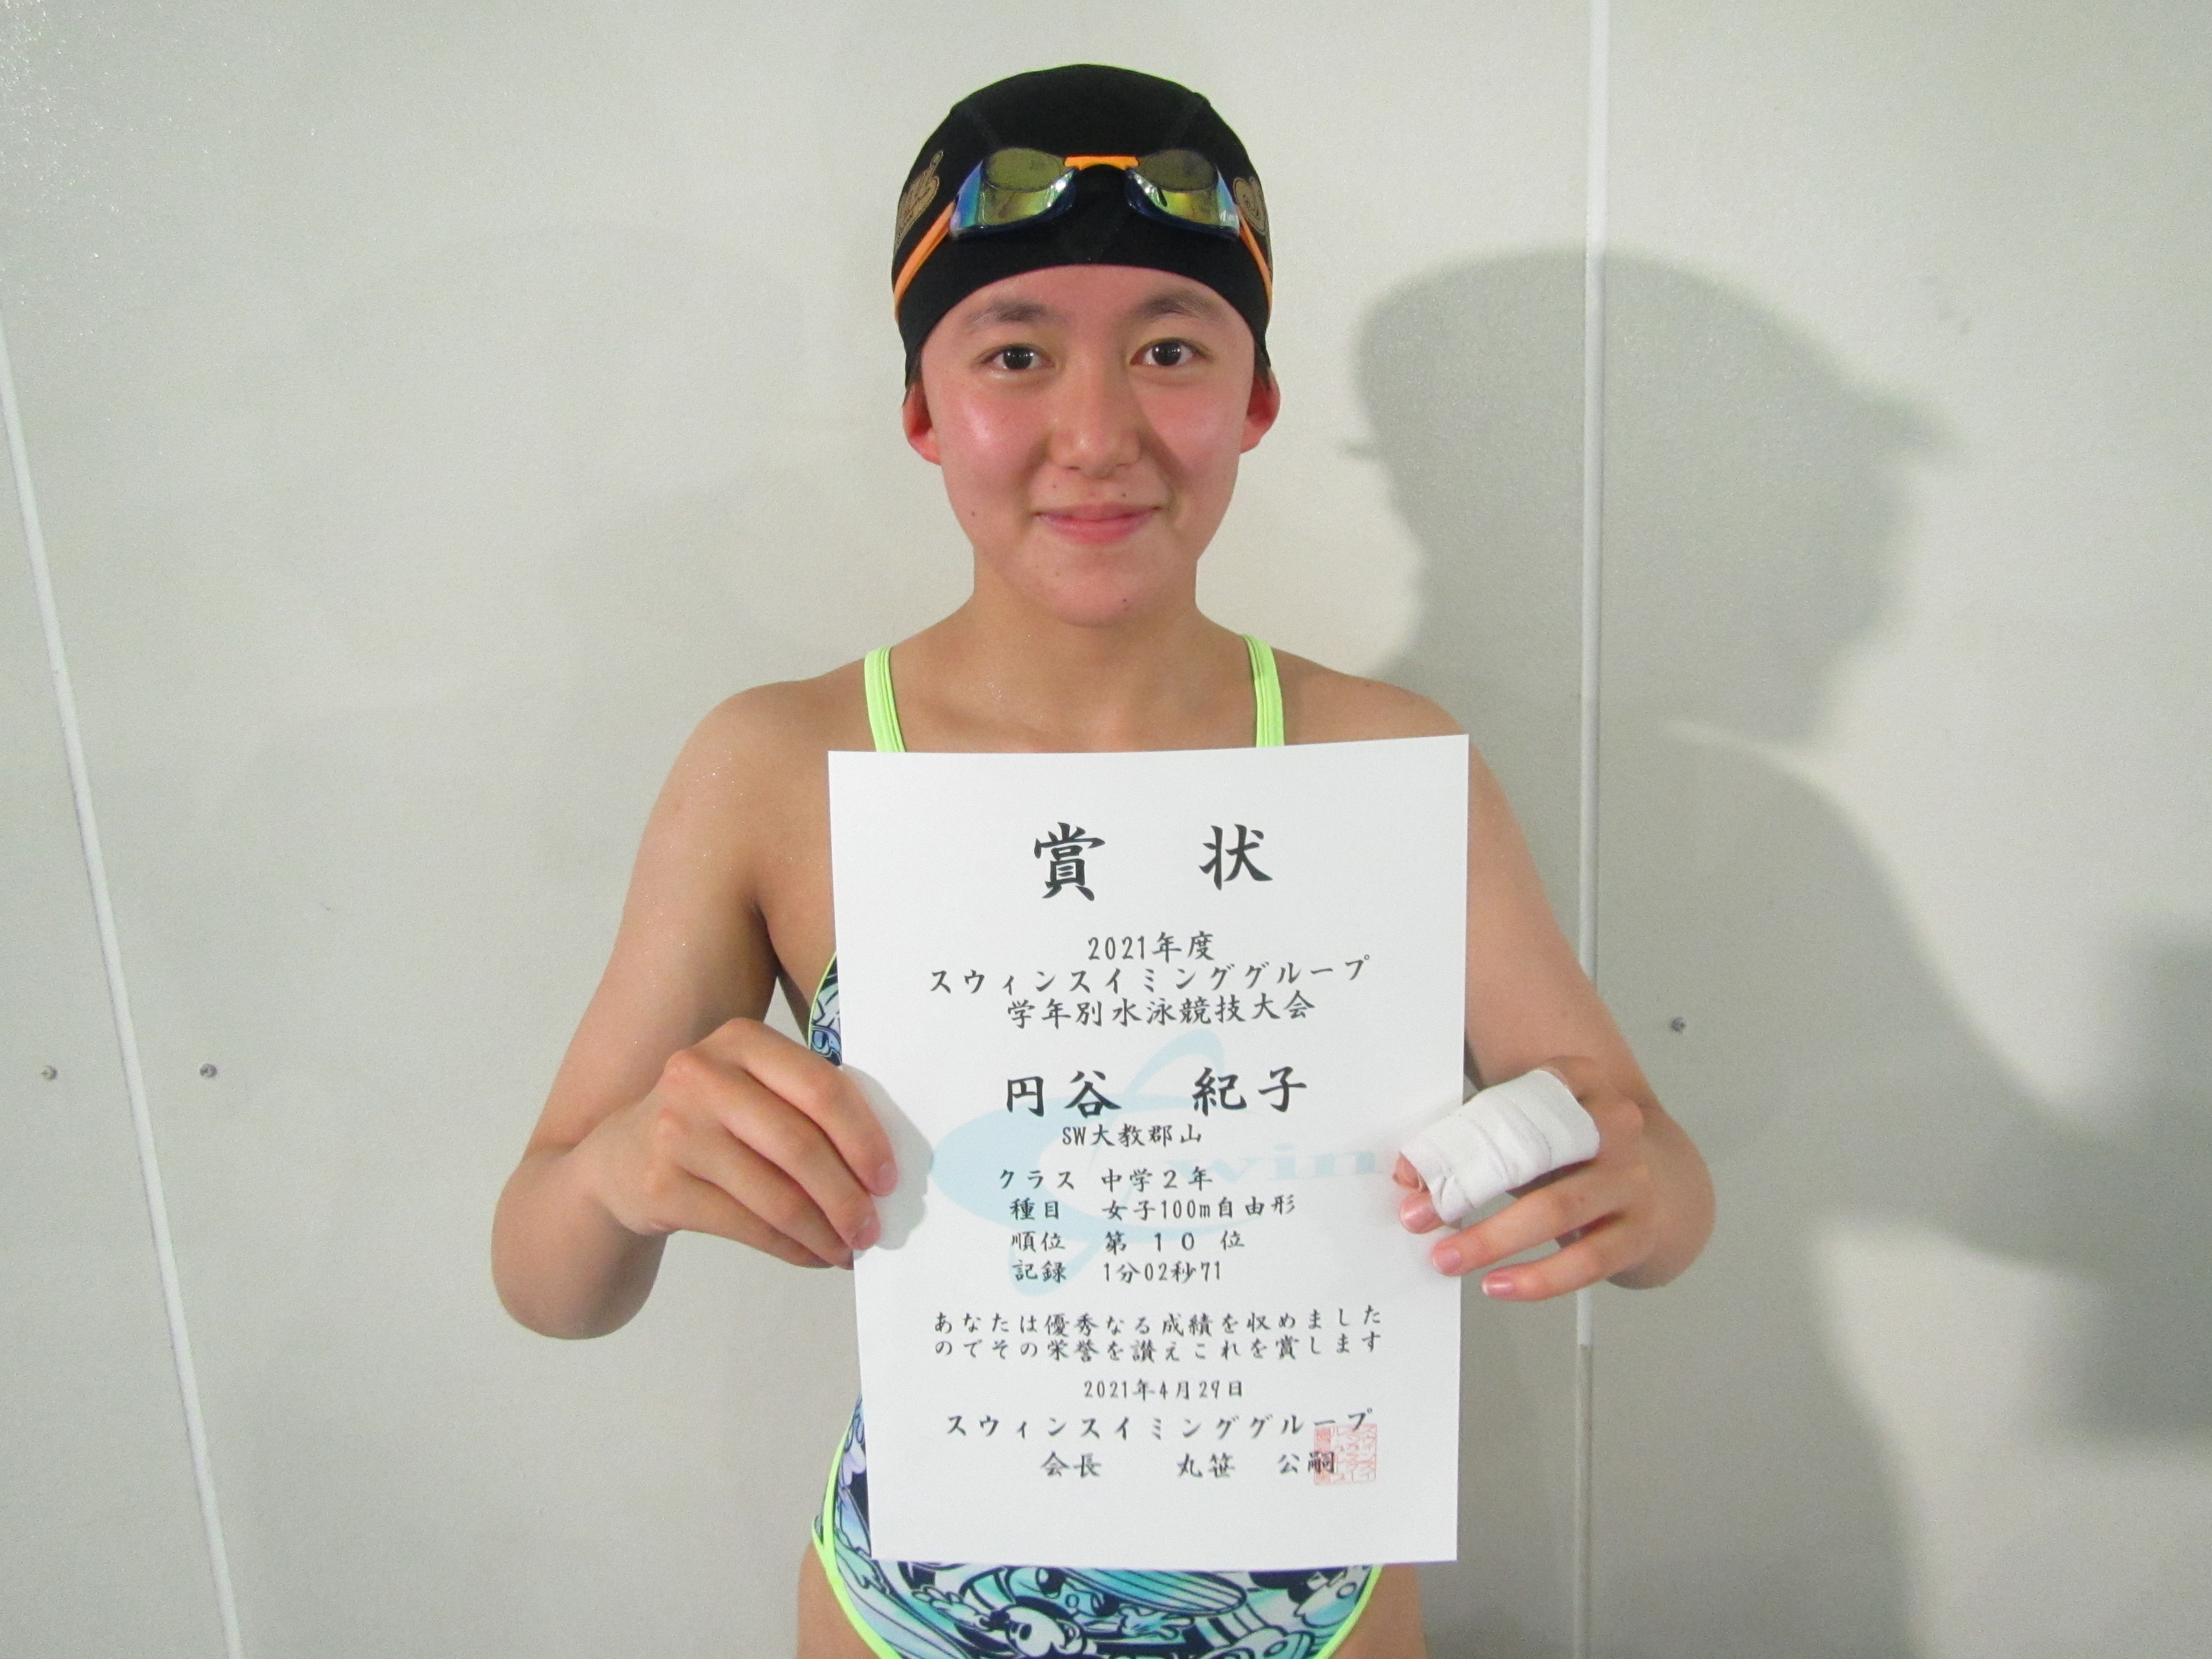 賞 状
2021年度
スウィンスイミンググループ
学年別水泳競技大会
円谷 紀子
SW大教郡山
Swin
クラス 中学2年
種目 女子100m自由形
順位 第 10 位
記録 1分02秒71
あなたは優秀なる成績を収めました
のでその栄誉を讃えこれを賞します
2021年4月29日
スウィンスイミンググループ
会長 丸笹 公嗣